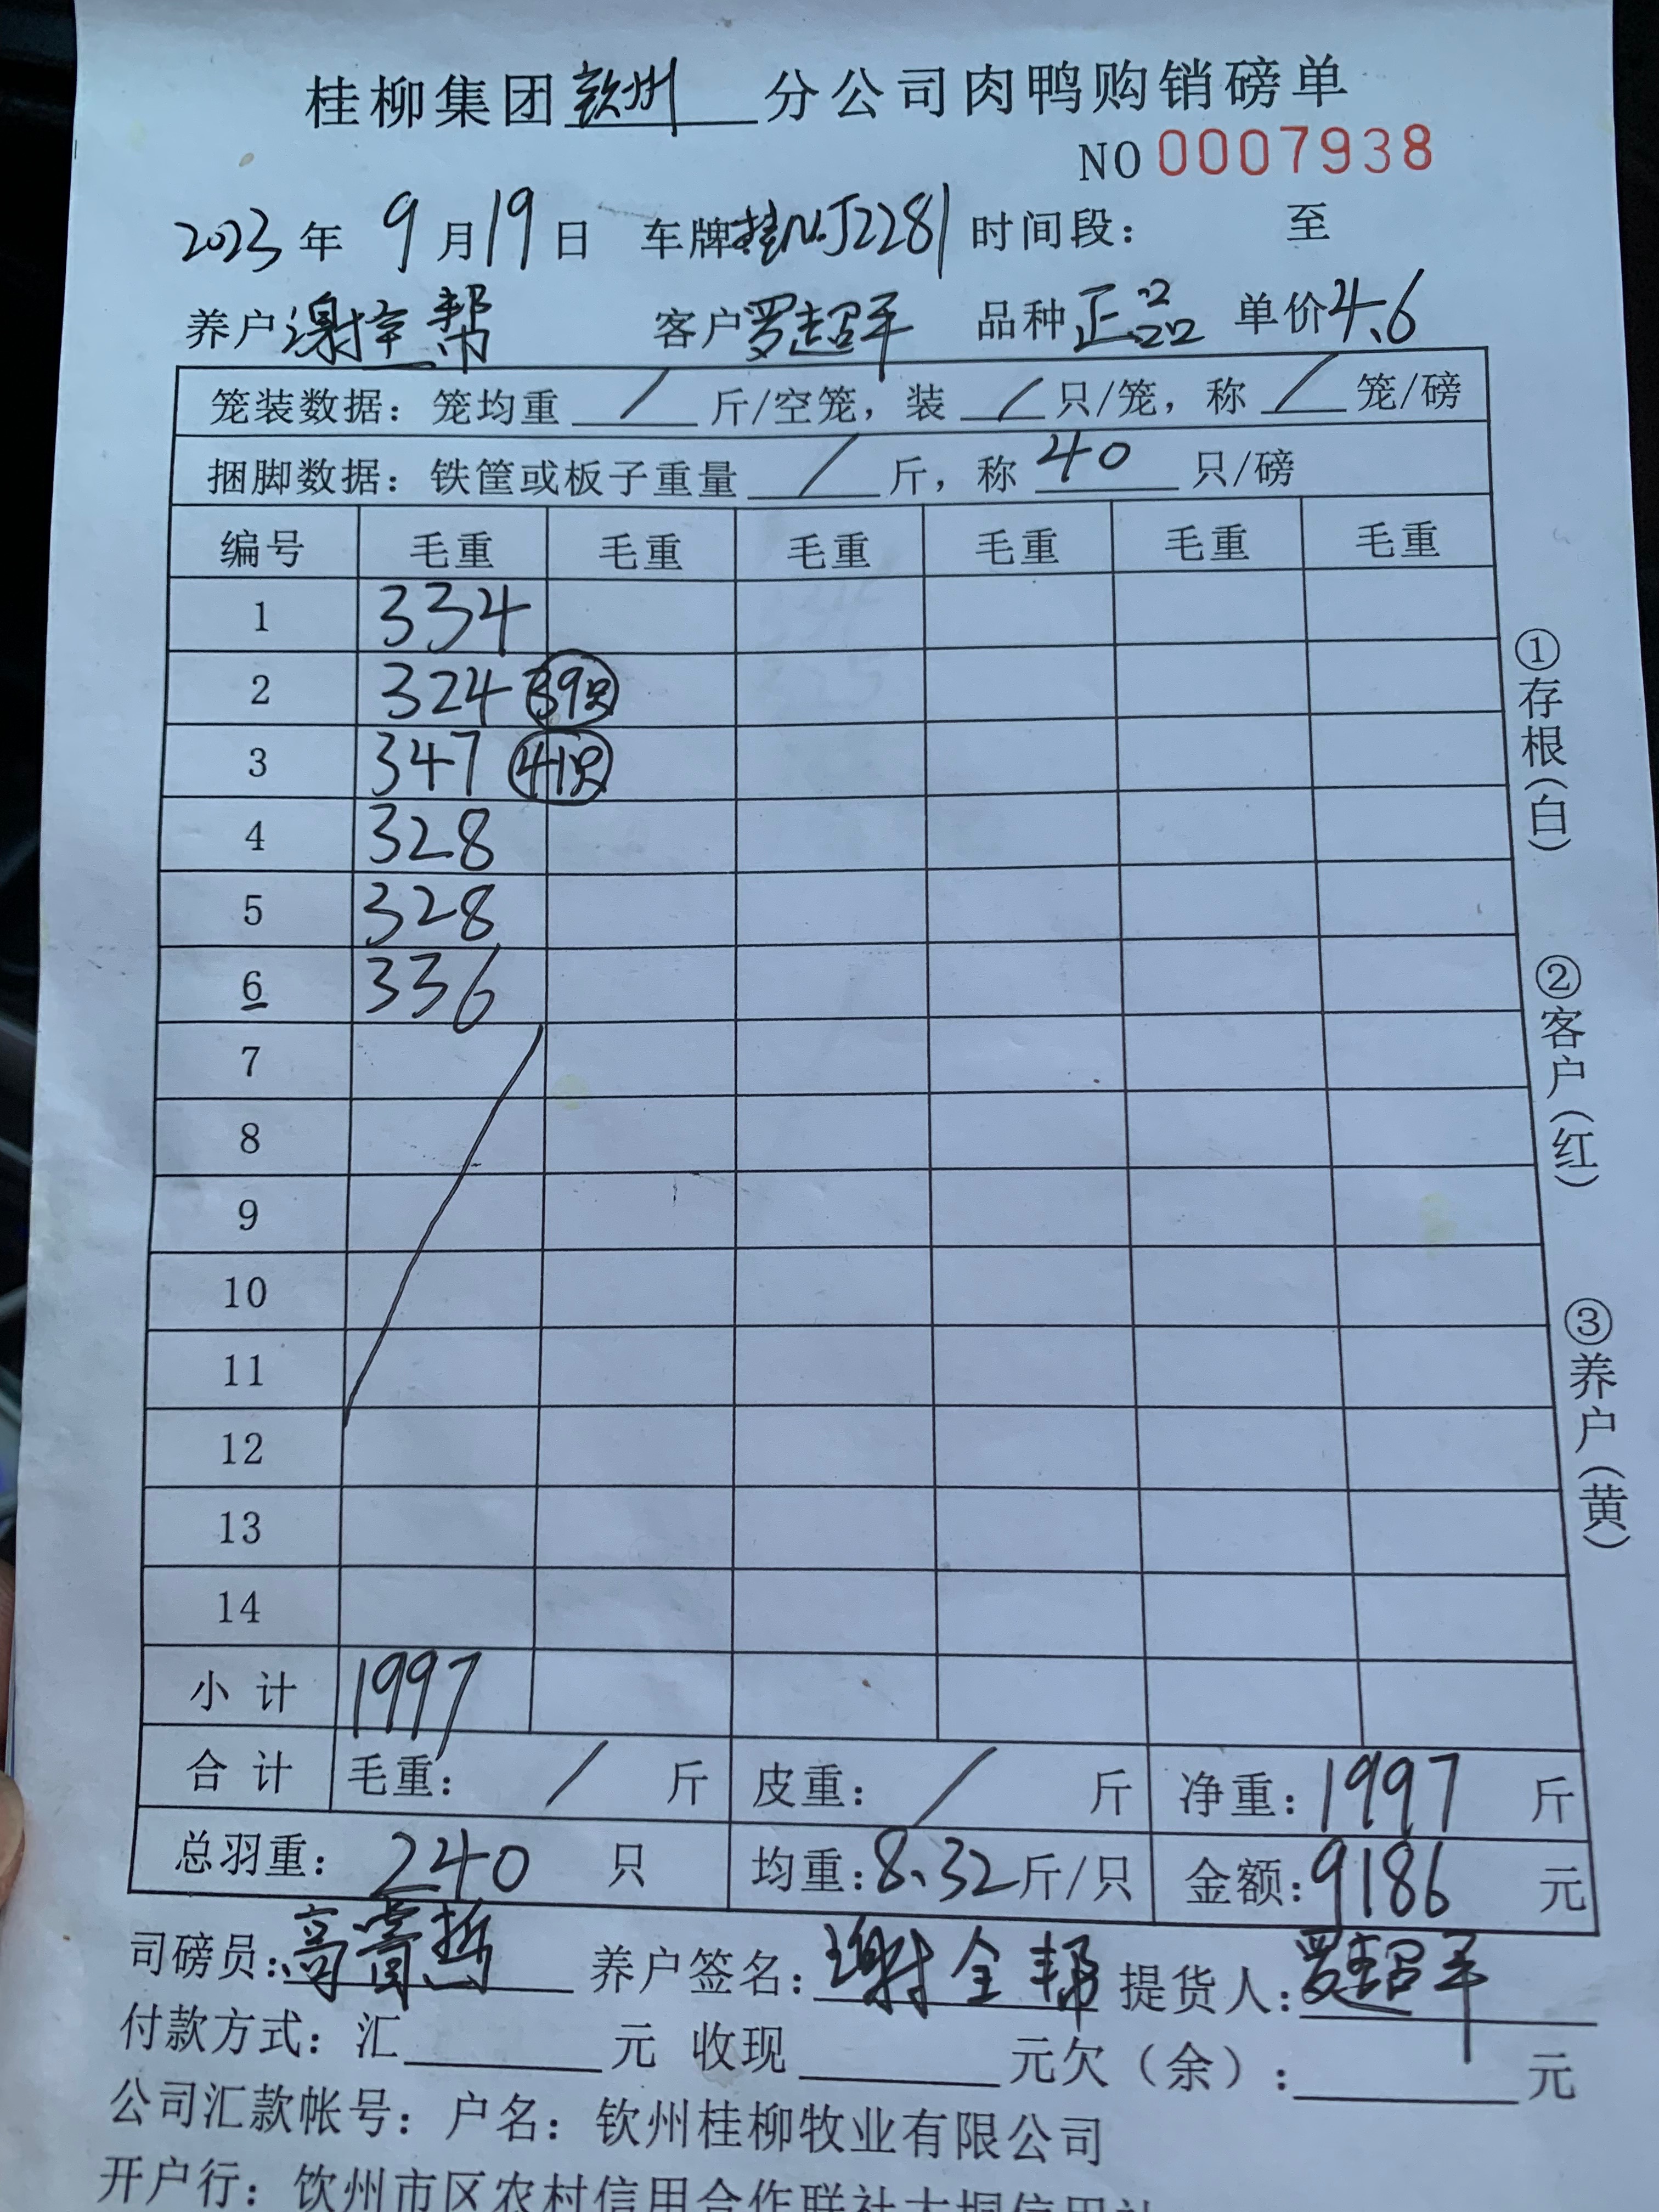 桂柳集团钦州分公司肉鸭购销磅单
NO 0007938
2023年 9月19日 车牌桂N.J2281 时间段： 至
养户谢全帮 客户罗超平 品种正品 单价4.6
笼装数据：笼均重 / 斤/空笼，装 / 只/笼，称 / 笼/磅
捆脚数据：铁筐或板子重量 / 斤，称 40 只/磅
编号 毛重 毛重 毛重 毛重 毛重 毛重
1 334
2 324 39只
3 347 41只
4 328
5 328
6 336
7
8
9
10
11
12
13
14
小计 1997
合计 毛重： / 斤 皮重： / 斤 净重：1997 斤
总羽重： 240 只 均重：8.32斤/只 金额：9186 元
司磅员： 养户签名：谢全帮 提货人：罗超平
付款方式：汇 元 收现 元欠（余）： 元
公司汇款帐号：户名：钦州桂柳牧业有限公司
开户行：钦州市区农村信用合作联社大垌信用社
①存根（白）
②客户（红）
③养户（黄）